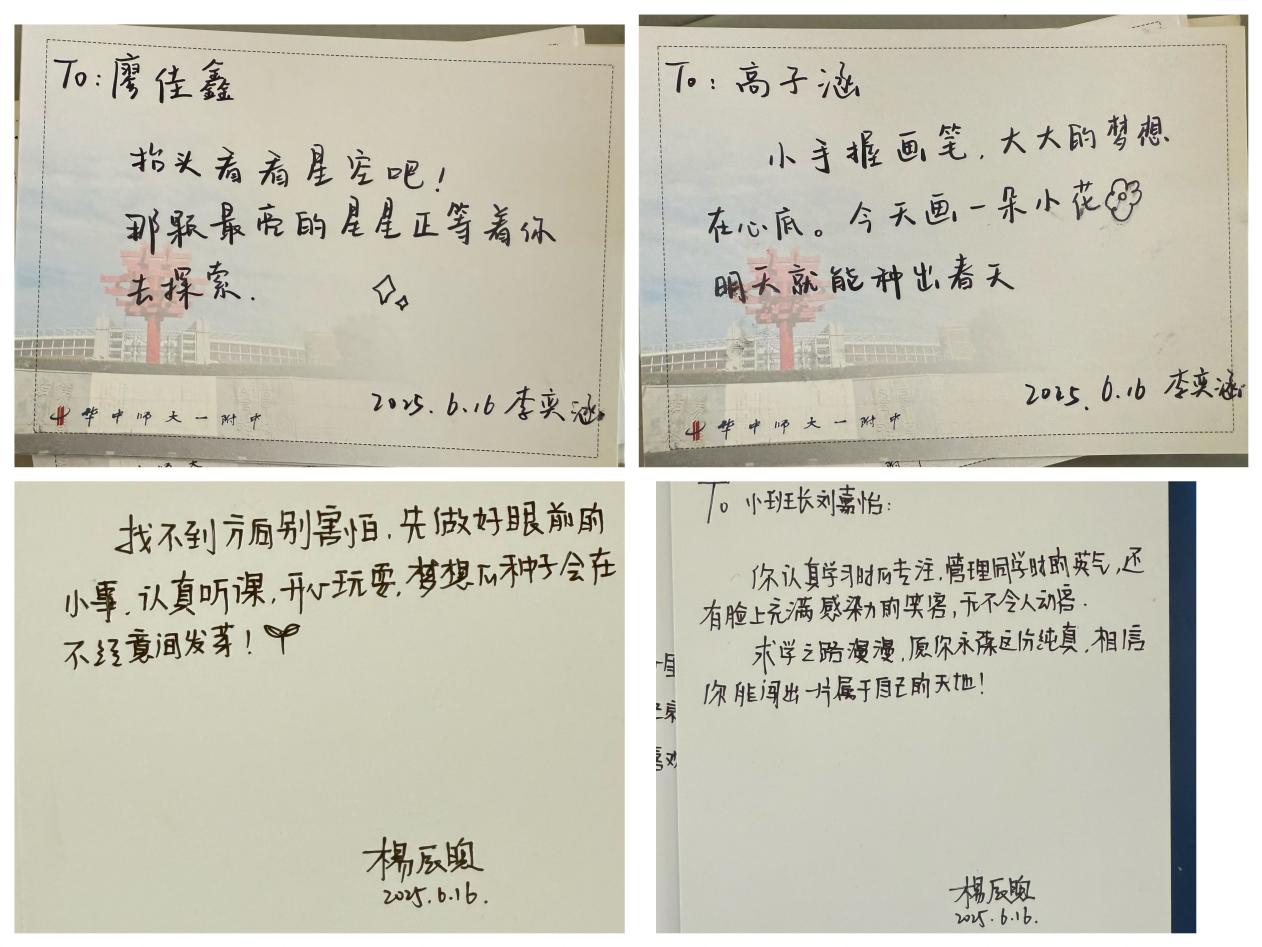 To: 廖佳鑫
抬头看看星空吧!
那颗最亮的星星正等着你
去探索.
2025.6.16 李奕涵
华中师大一附中
To: 高子涵
小手握画笔,大大的梦想
在心底。今天画一朵小花
明天就能种出春天
2025.6.16 李奕涵
华中师大一附中
找不到方向别害怕,先做好眼前的
小事,认真听课,开心玩耍,梦想的种子会在
不经意间发芽!
杨辰
2025.6.16.
To 小班长刘嘉怡:
你认真学习时的专注,管理同学时的英气,还
有脸上充满感染力的笑容,无不令人动容.
求学之路漫漫,愿你永葆这份纯真,相信
你能闯出一片属于自己的天地!
杨辰
2025.6.16.